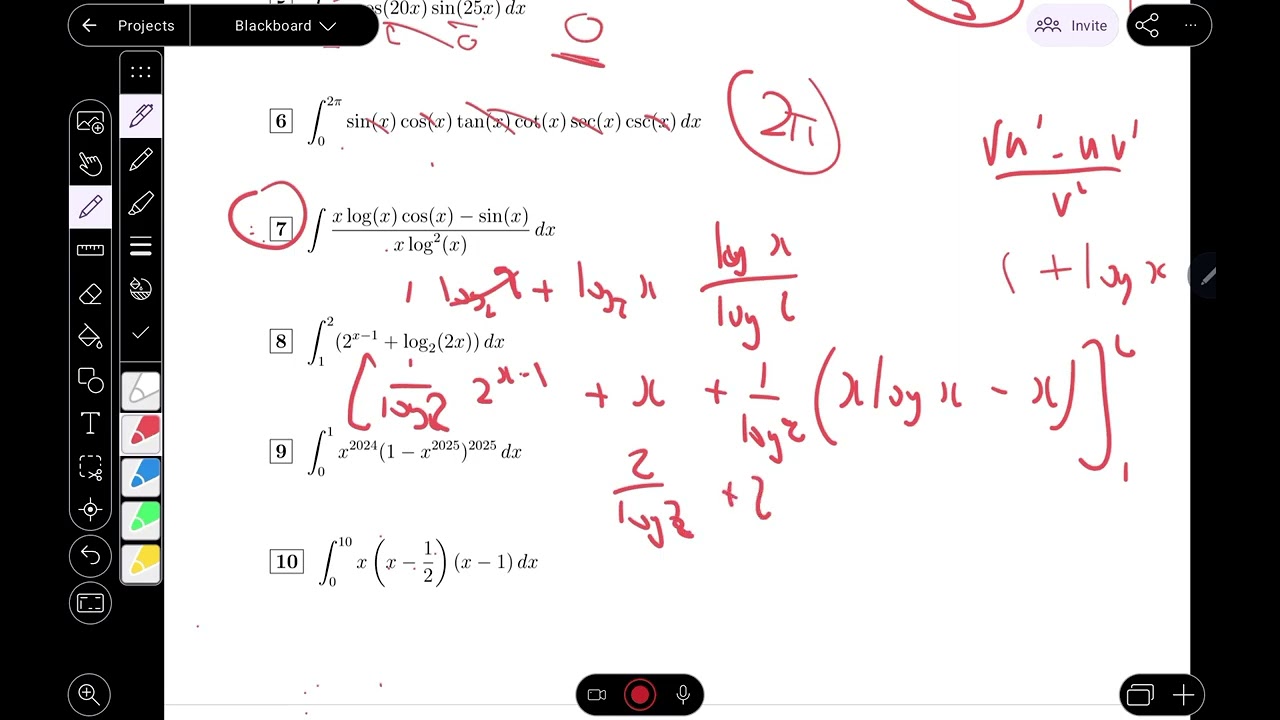 Projects
Blackboard
Invite
os(20x) sin(25x) dx
0
0
6 ∫₀^{2π} sin(x) cos(x) tan(x) cot(x) sec(x) csc(x) dx
2π
vu' - uv'
v²
7 ∫ (x log(x) cos(x) − sin(x)) / (x log²(x)) dx
1 log₂ 2 + log₂ x
log x
log 2
1 + log x
8 ∫₁² (2^{x−1} + log₂(2x)) dx
[ 1/log 2 2^{x-1} + x + 1/log 2 (x log x - x) ]₁²
9 ∫₀¹ x^{2024}(1 − x^{2025})^{2025} dx
2/log 2 + 2
10 ∫₀^{10} x (x − 1/2) (x − 1) dx
T